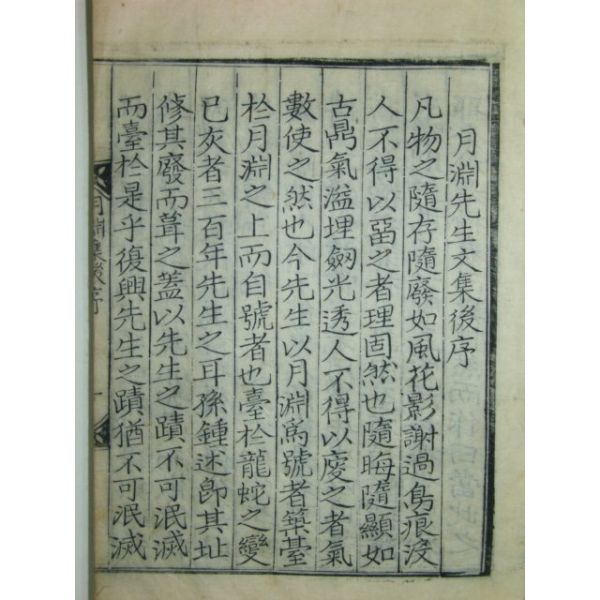 月淵先生文集後序
凡物之隨存隨廢如風花影謝過鳥痕沒
人不得以畱之者理固然也隨晦隨顯如
古鼎氣溢埋劒光透人不得以廋之者氣
數使之然也今先生以月淵爲號者築臺
於月淵之上而自號者也臺於龍蛇之變
已灰者三百年先生之耳孫鍾述卽其址
修其廢而葺之蓋以先生之蹟不可泯滅
而臺於是乎復興先生之蹟猶不可泯滅
月淵集後序